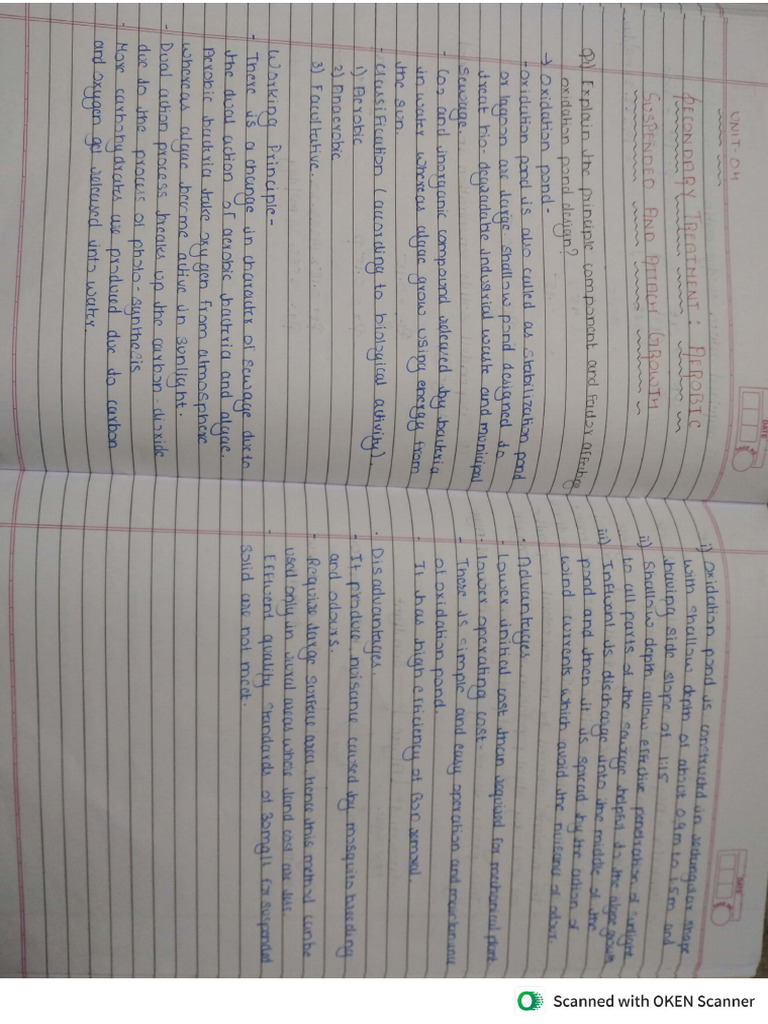 UNIT. 04
SECONDARY TREATMENT: AEROBIC
SUSPENDED AND ATTACH GROWTH
DATE
Q1) Explain the principle component and factor affecting
oxidation pond design?
→ Oxidation pond -
- Oxidation pond is also called as stabilization pond
or lagoon are large shallow pond designed to
treat bio-degradable industrial waste and municipal
sewage.
- Co2 and inorganic compound released by bactria
in water whereas algae grow using energy from
the sun.
- classification (according to biological activity).
1) Aerobic
2) Anaerobic
3) Facultative.
Working Principle -
- There is a change in charater of sewage due to
the dual action of aerobic bactria and algae.
Aerobic bactria take oxygen from atmosphere
whereas algae become ative in sunlight.
- Dual ation process breaks up the carbon-dioxide
due to the process of photo-synthesis
- More carbohydrates are produced due to carbon
and oxygen get released into water.
DATE
i) Oxidation pond is constructed in rectangular shape
with shallow depth of about 0.9m to 1.5m and
having side slope of 1:1.5
ii) Shallow depth allow effective penetration of sunlight
to all parts of the sewage helpful to the algae growth
iii) Influent is discharge into the middle of the
pond and then it is spread by the action of
wind currents which avoid the nuisance of odour.
• Advantages
- lower initial cost than required for mechanical plant
- lower operating cost.
- There is simple and easy operation and maintenance
of oxidation pond.
- It has high efficiency of BOD removal.
• Disadvantages.
- It produce nuisance caused by mosquito breeding
and odours.
- Require large surface area hence this method can be
used only in rural areas where land cost are less
- Effluent quality standards of 30mg/l for suspended
solid are not meet.
Scanned with OKEN Scanner